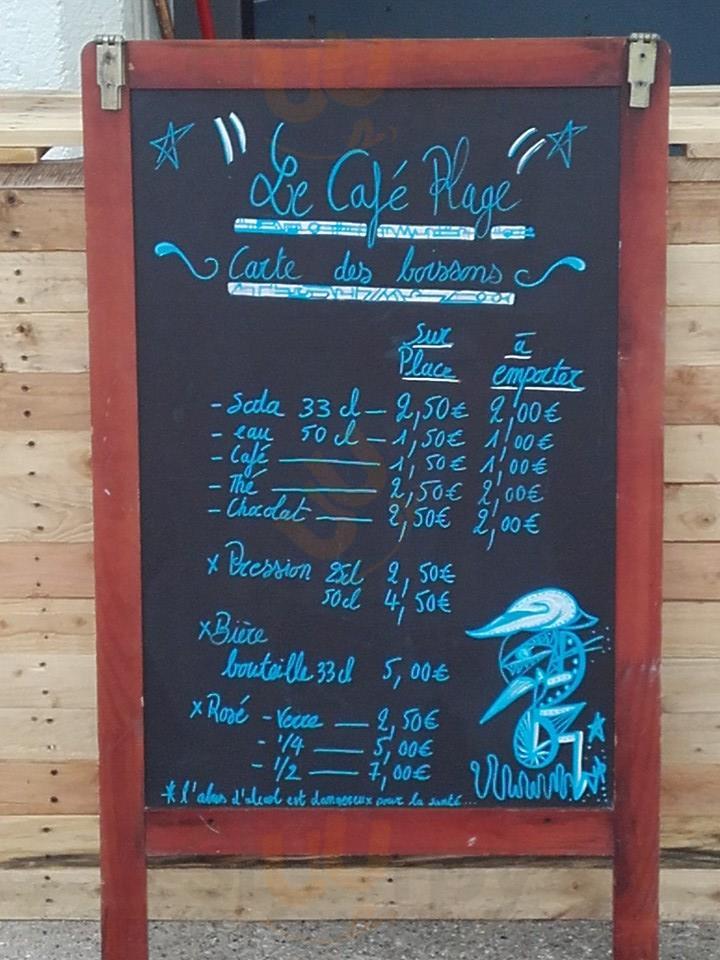 Le Café Plage
Carte des boissons
Sur Place
à emporter
- Soda 33 cl — 2,50€ 2,00€
- eau 50 cl — 1,50€ 1,00€
- Café — 1,50€ 1,00€
- Thé — 2,50€ 2,00€
- Chocolat — 2,50€ 2,00€
x Pression 25cl 2,50€
50cl 4,50€
x Bière
bouteille 33 cl 5,00€
x Rosé - Verre — 2,50€
- 1/4 — 5,00€
- 1/2 — 7,00€
* l'abus d'alcool est dannereux pour la santé...